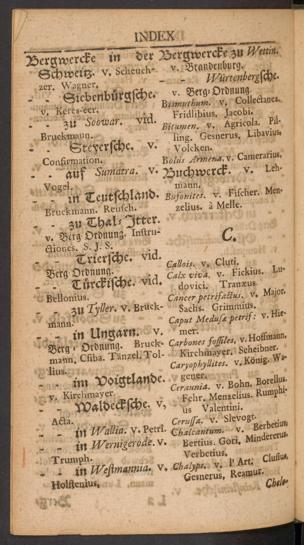 INDEX
Bergwercke in der
Schweitz. v. Scheuch-
zer. Wagner.
- - Siebenbürgsche.
v. Keres-eer.
- - zu Soowar. vid.
Bruckmann.
- - Steyersche. v.
Confirmation.
- - auf Sumatra. v.
Vogel.
- - in Teutschland.
Bruckmann. Reusch.
- - zu Thal-Itter.
v. Berg Ordnung. Instru-
ctiones. S. J. S.
- - Triersche. vid.
Berg Ordnung.
- - Türckische. vid.
Bellonius.
- - zu Tyller. v. Bruck-
mann.
- - in Ungarn. v.
Berg Ordnung. Bruck-
mann, Csiba. Tänzel. Tol-
lius.
- - im Voigtlande.
v. Kirchmayer.
- - Waldecksche, v,
Acta.
- - in Wallia. v. Petrl.
- - in Wernigerode. v.
Trumph.
- - in Westmannia. v.
Holstenius,
Berg-
Bergwercke zu Wettin.
v. Brandenburg.
- - Würtenbergsche.
v. Berg-Ordnung.
Bismuthum. v. Collectanea.
Fridlibius, Jacobi.
Bitumen. v. Agricola. Pil-
ling. Gesnerus, Libavius,
Volcken.
Bolus Armena. v. Camerarius.
Buchwerck. v. Leh-
mann.
Bufonites. v. Fischer. Men-
zelius. à Melle.
C.
Callois. v. Cluti.
Calx viva. v. Fickius. Lu-
dovici. Tranæus.
Cancer petrifactus. v. Major.
Sachs. Grimmius.
Caput Medusæ petrif: v. Hie-
mer.
Carbones fossiles, v. Hoffmann.
Kirchmayer. Scheibner.
Caryophyllites. v. König. Wa-
gener.
Ceraunia. v. Bohn. Borellus.
Fehr. Mentzelius. Rumphi-
us Valentini.
Cerussa. v. Slevogt.
Chalcantum. v. Berbetius
Bertius. Gori, Mindererus.
Verbetius.
Chalyps. v. l'Art. Clusius,
Gesnerus, Reamur.
Chelo-